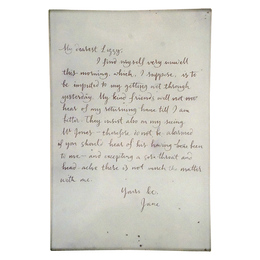 My dearest Lizzy;
I find myself very unwell
this morning, which, I suppose, is to
be imputed to my getting wet through
yesterday. My kind friends will not
hear of my returning home till I am
better. They insist also on my seeing
Mr Jones - therefore do not be alarmed
if you should hear of his having been
to me - and excepting a sore throat and
head-ache there is not much the matter
with me.
Yours &c.
Jane